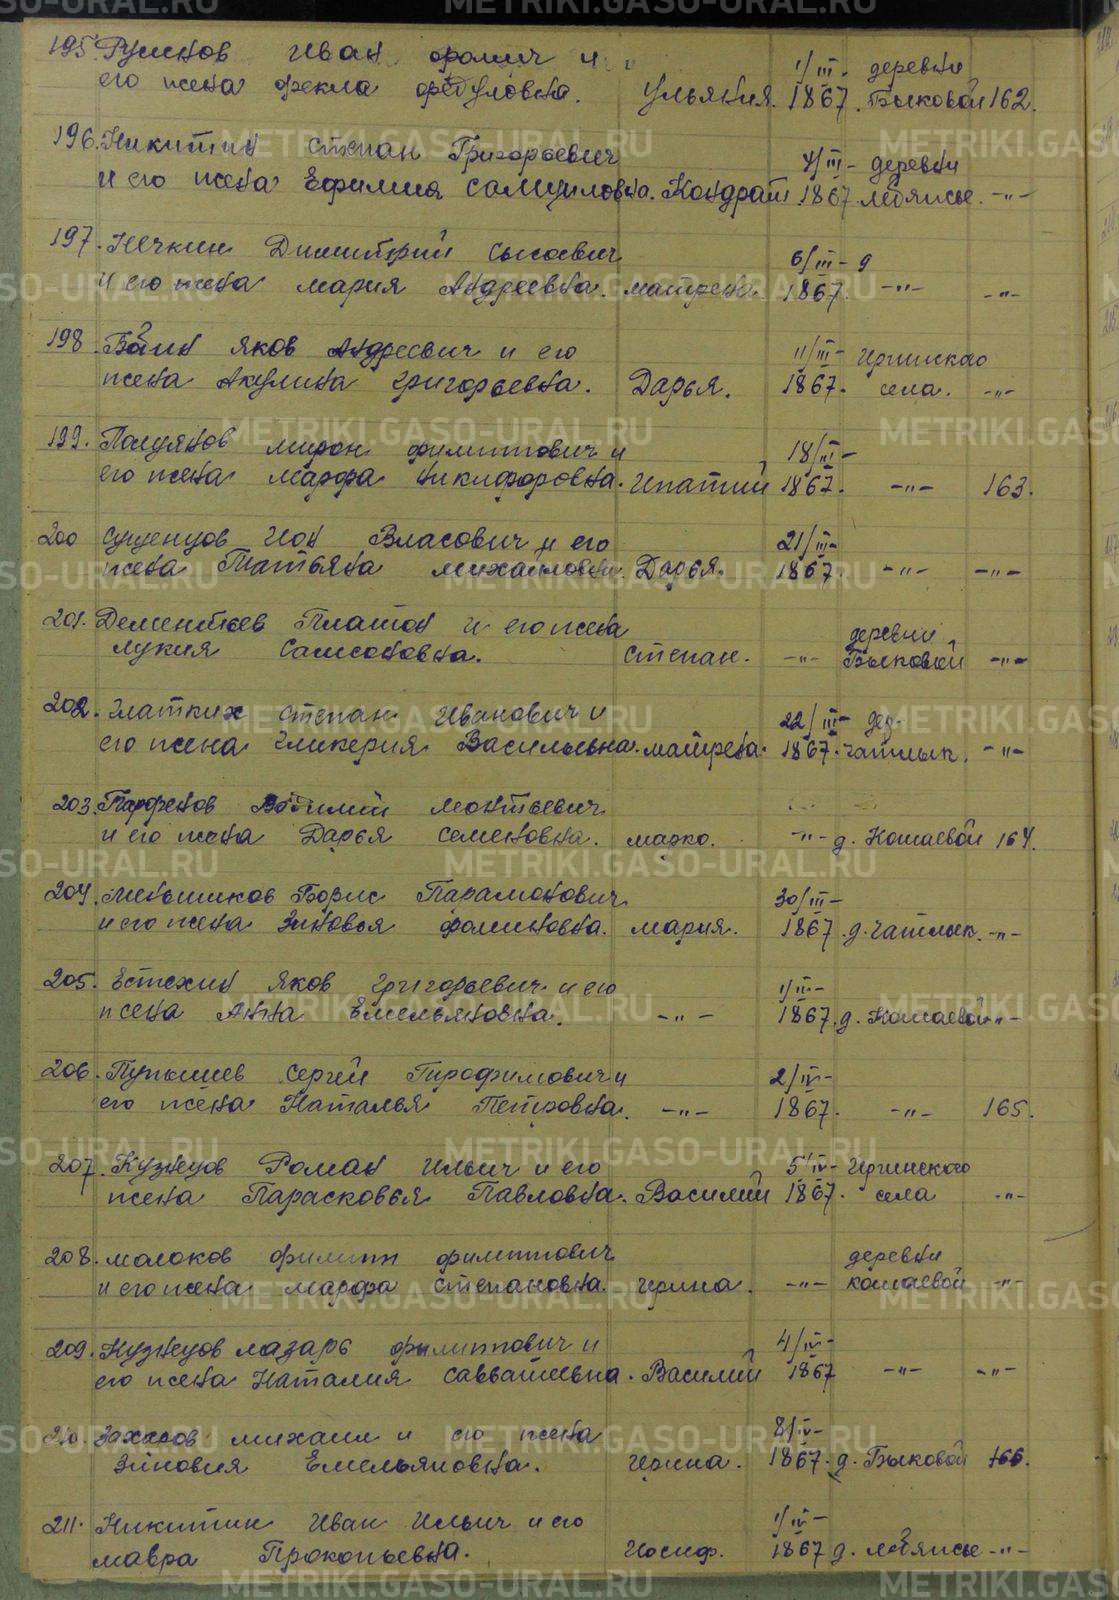 195. Русинов Иван Фомич и
его жена Фекла Федуловна. Ульяния. 1/III- 1867. деревни Быковой 162.
196. Никитин Степан Григорьевич
и его жена Ефимия Самуиловна. Кондрат. 4/III- 1867. деревни Лебяжье. -"-
197. Нечкин Димитрий Сысоевич
и его жена Мария Андреевна. Матрена. 6/III- 1867. д -"- -"-
198. Яков Андреевич и его
жена Акулина Григорьевна. Дарья. 11/III- 1867. Иргинскао села. -"-
199. Полуянов Мирон Филиппович и
его жена Марфа Никифоровна. Ипатий 18/III- 1867. -"- 163.
200 Сущенцов Иов Власович и его
жена Татьяна Михайловна. Дарья. 21/III- 1867. -"- -"-
201. Дементьев Платон и его жена
Лукия Самсоновна. Степан. -"- деревни Быковой -"-
202. Глатких Степан Иванович и
его жена Гликерия Васильевна. Матрена. 22/III- 1867. дер. Чатлык. -"-
203. Парфенов Моктьевич
и его жена Дарья Семеновна. Марко. -"- д. Кошаевой 164.
204. Меньшиков Борис Парамонович
и его жена Зиновья Фоминовна. Мария. 30/III- 1867. д. Чатлык. -"-
205. Естехин Яков Григорьевич и его
жена Анна Емельяновна. -"- 1/III- 1867. д. Кошаевой -"-
206. Пупышев Сергей Тирофимович и
его жена Наталья Петровна. -"- 2/IV- 1867. -"- 165.
207. Кузнецов Роман Ильич и его
жена Парасковья Павловна. Василий 5/IV- 1867. Иргинского села -"-
208. Молоков Филипп Филиппович
и его жена Марфа Степановна. Ирина. -"- деревни Кошаевой -"-
209. Кузнецов Лазарь Филиппович и
его жена Наталия Савватиевна. Василий 4/IV- 1867 -"- -"-
210. Захаров Михаил и его жена
Зиновия Емельяновна. Ирина. 8/IV- 1867. д. Быковой 166.
211. Никитин Иван Ильич и его
Мавра Прокопьевна. Иосиф. 1/IV- 1867 д. Лебяжье -"-
METRIKI.GASO-URAL.RU